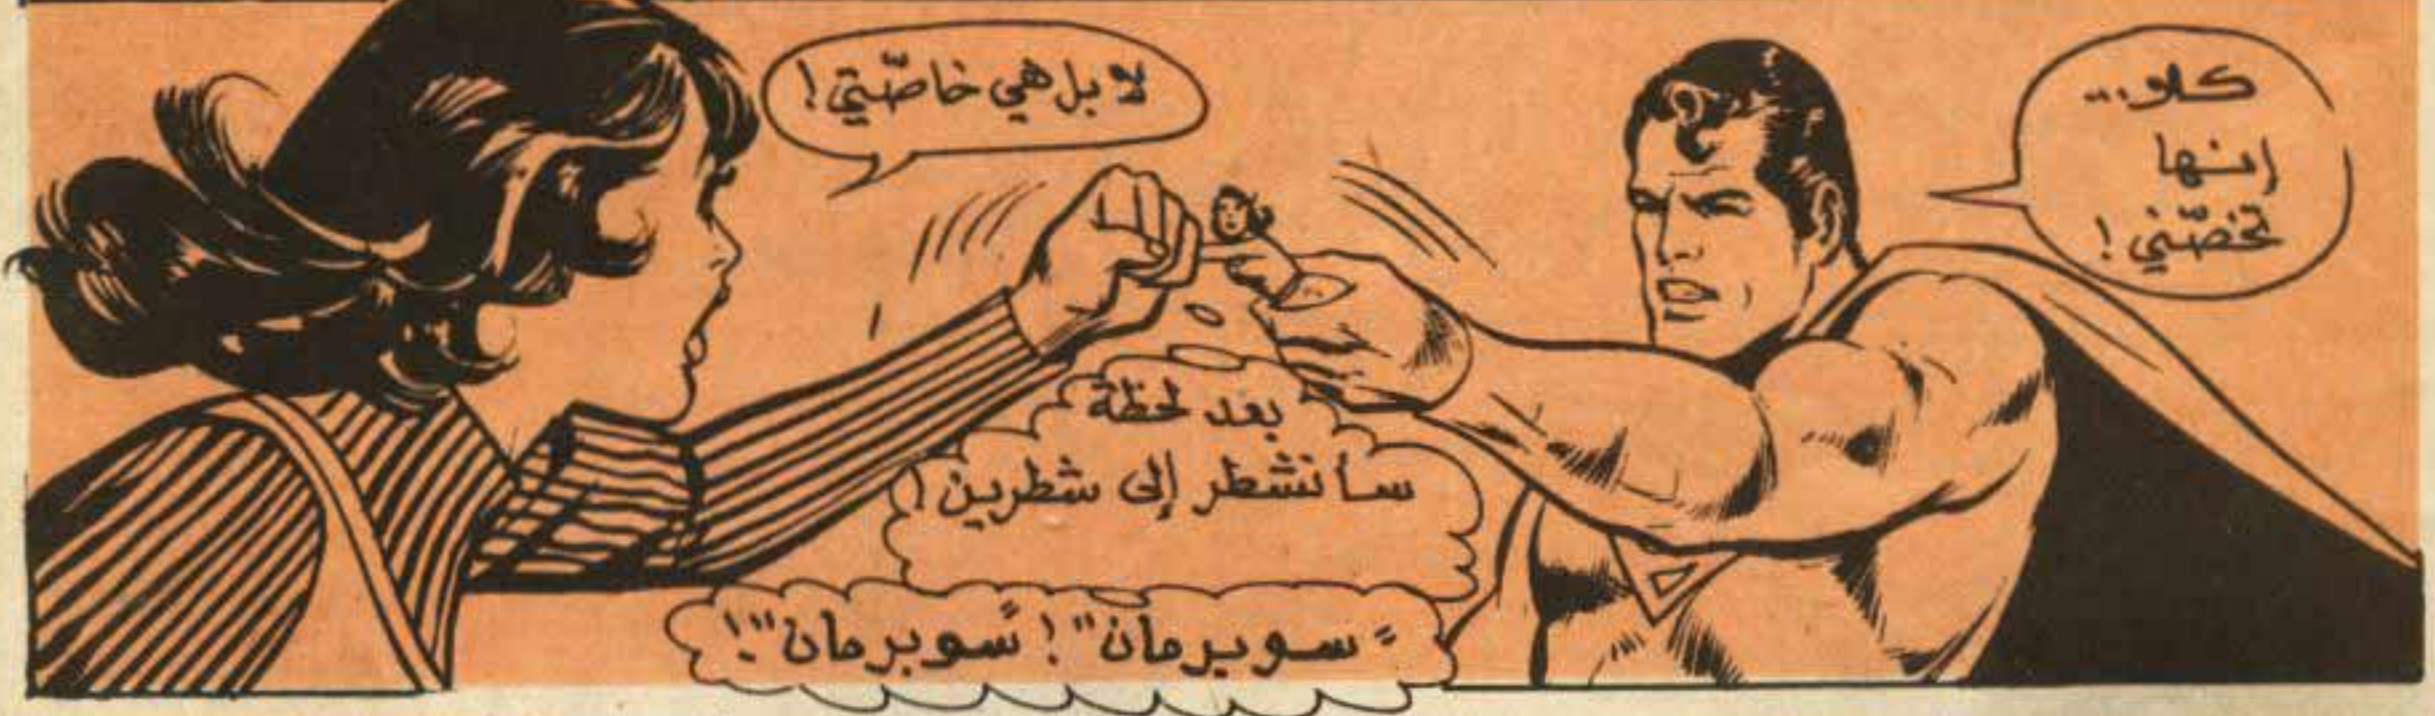 كلا...
إنها
تخصّني!
لا بل هي خاصّتي!
بعد لحظة
سأنشطر إلى شطرين!
"سوبرمان"! "سوبرمان"!